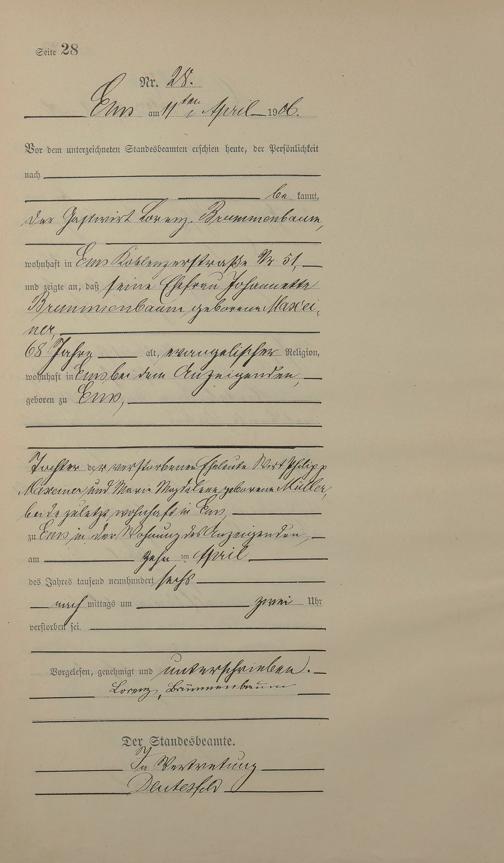 Seite 28
Nr. 28.
Ems am 11ten April 1906.
Vor dem unterzeichneten Standesbeamten erschien heute, der Persönlichkeit
nach
be kannt,
der Gastwirt Lorenz Brummenbaum,
wohnhaft in Ems Koblenzerstraße Nr 51,
und zeigte an, daß seine Ehefrau Johannette
Brummenbaum geborene Maxei-
ner,
68 Jahre alt, evangelischer Religion,
wohnhaft in Ems bei dem Anzeigenden,
geboren zu Ems,
Tochter der verstorbenen Eheleute Wirt Philipp
Maxeiner und Marie Magdalene geborene Müller,
beide zuletzt wohnhaft in Ems,
zu Ems in der Wohnung des Anzeigenden,
am zehn ten April
des Jahres tausend neunhundert sechs
nach mittags um zwei Uhr
verstorben sei.
Vorgelesen, genehmigt und unterschrieben.
Lorenz Brummenbaum
Der Standesbeamte.
In Vertretung